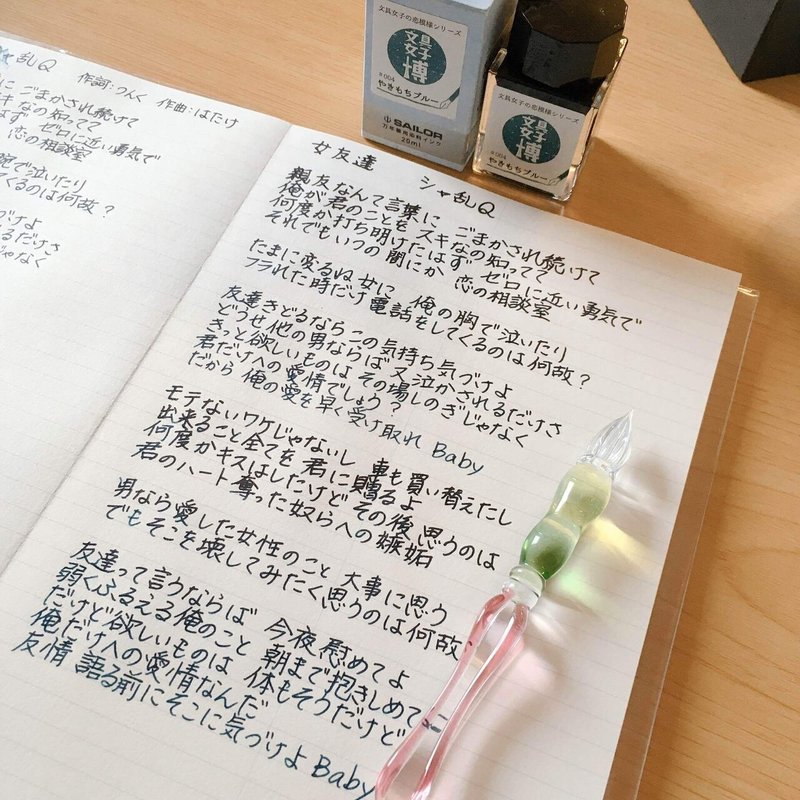 シャ乱Q 作詞:つんく 作曲:はたけ
に ごまかされ続けて
スキなの知ってて
はず ゼロに近い勇気で
恋の相談室
胸で泣いたり
てくるのは何故?
づけよ
るだけさ
じゃなく
文具女子の恋模様シリーズ
文具女子博
#004
やきもちブルー
SAILOR
万年筆用染料インク
20ml
文具女子の恋模様シリーズ
文具女子博
#004
やきもちブルー
女友達 シャ乱Q
親友なんて言葉に ごまかされ続けて
俺が君のことを スキなの知ってて
何度か打ち明けたはず ゼロに近い勇気で
それでもいつの間にか 恋の相談室
たまに変るね女に 俺の胸で泣いたり
フラれた時だけ電話をしてくるのは何故?
友達きどるならこの気持ち気づけよ
どうせ他の男ならば 又泣かされるだけさ
きっと欲しいものは その場しのぎじゃなく
君だけへの愛情でしょう?
だから 俺の愛を早く受け取れ Baby
モテないワケじゃないし 車も買い替えたし
出来ること全てを 君に贈るよ
何度かキスはしたけど その後 思うのは
君のハート奪った奴らへの嫉妬
男なら愛した女性のこと 大事に思う
でもそこを壊してみたく思うのは何故
友達って言うならば 今夜 慰めてよ
弱くふるえる俺のこと 朝まで抱きしめて
だけど欲しいものは 体もそうだけど
俺だけへの愛情なんだ
友情 語る前にそこに気づけよ Baby